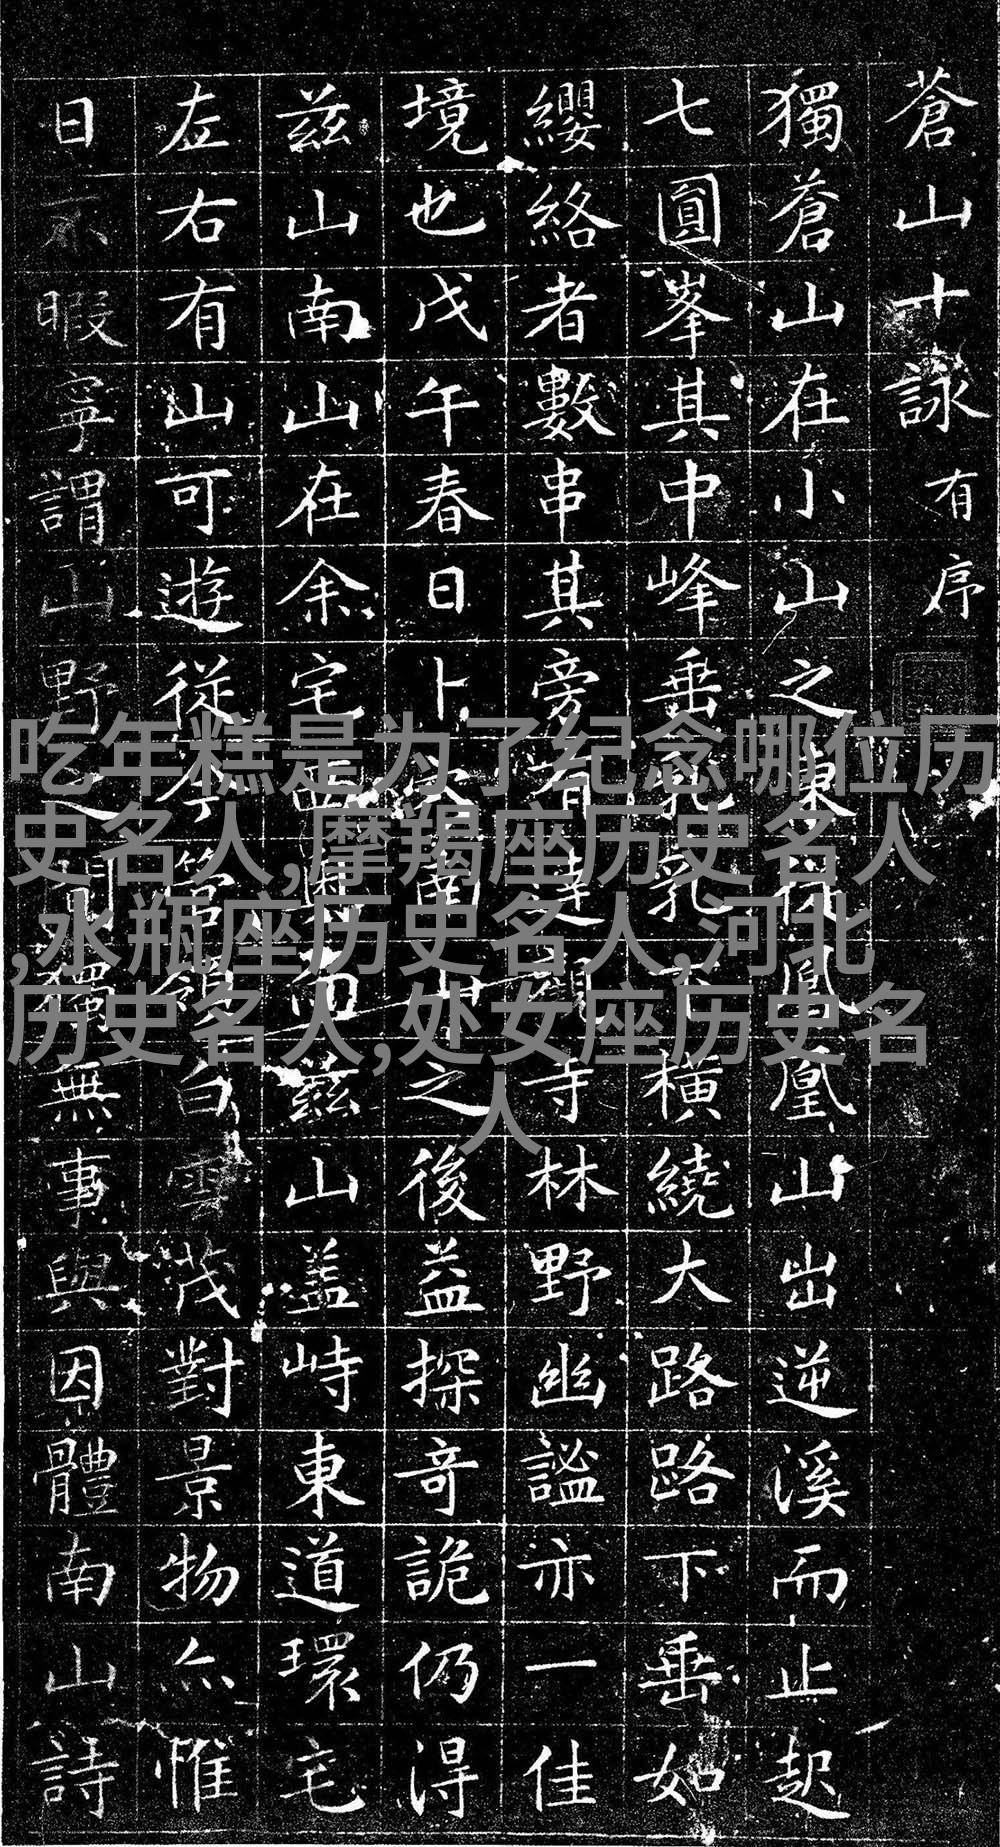 蒼山十詠 有序
獨蒼山在小山之東從鳳凰山出逆溪而止起
七圓峯其中峰垂乳乳下橫繞大路路下垂如
纓絡者數串其旁有達觀寺林野幽謐亦一佳
境也戊午春日卜南山之後益探奇詭仍得
茲山南山在余宅西而茲山盖峙東道環宅
左右有山可遊從今管領白雲茂對景物亦惟
日不暇寧謂山野之間獨無事與因體南山詩
吃年糕是为了纪念哪位历
史名人,摩羯座历史名人
,水瓶座历史名人,河北
历史名人,处女座历史名
人